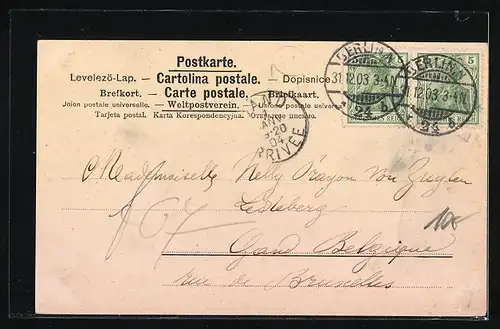 Postkarte.
Levelező-Lap. — Cartolina postale. — Dopisnice
Brefkort. — Carte postale. — Briefkaart.
Union postale universelle. — Weltpostverein. — Union postale universelle.
Tarjeta postal. Karta Korespondencyjna. Открытое письмо.
BERLIN
31.12.03 3-4N.
BERLIN
.12.03 3-4N.
5
GAND
JANV
9-20
04
PRIVÉE
Mademoiselle Nelly von Zuylen
Ledeberg
167
Gand Belgique
rue de Bruxelles
10€